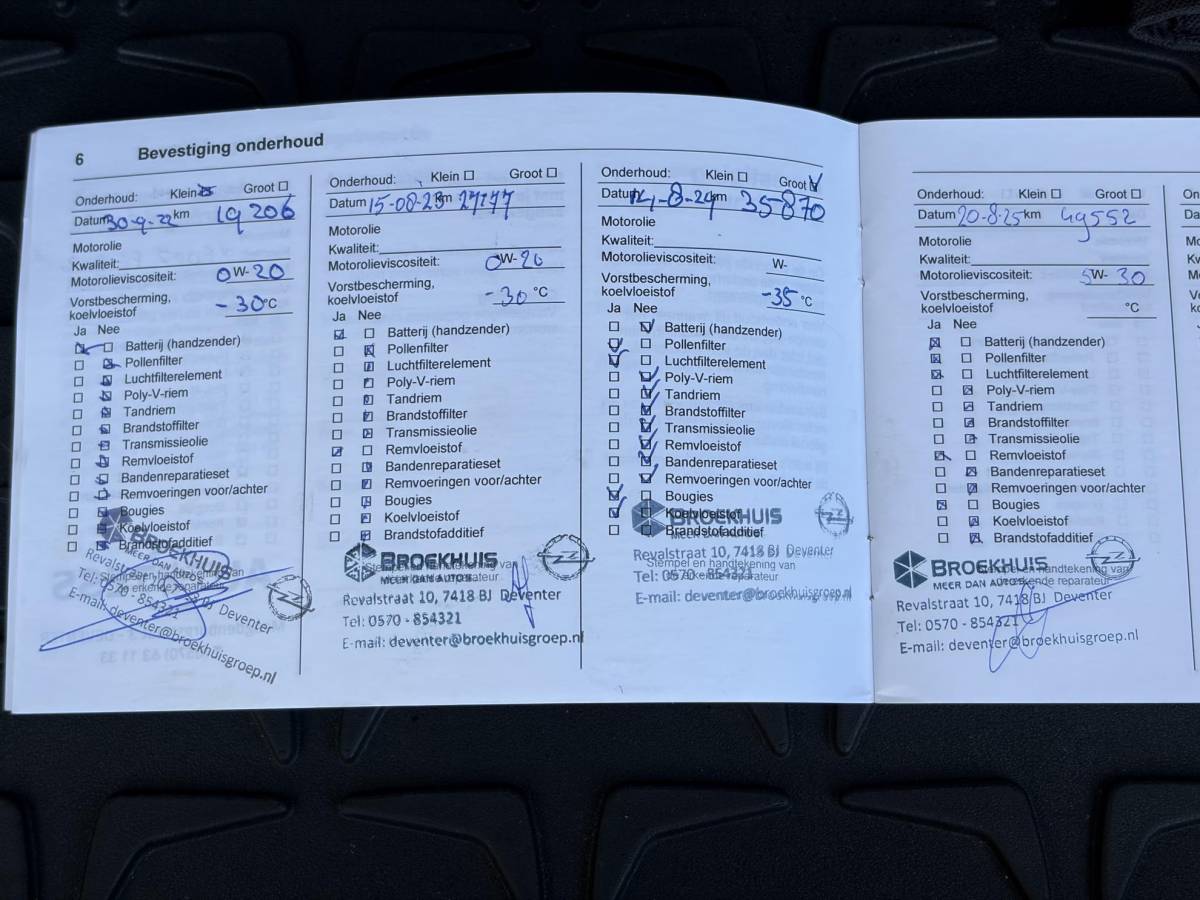 6 Bevestiging onderhoud
Onderhoud: Klein Groot
Datum 30-9-22 km 19 206
Motorolie
Kwaliteit:
Motorolieviscositeit: 0 W- 20
Vorstbescherming,
koelvloeistof - 30 °C
Ja Nee
Batterij (handzender)
Pollenfilter
Luchtfilterelement
Poly-V-riem
Tandriem
Brandstoffilter
Transmissieolie
Remvloeistof
Bandenreparatieset
Remvoeringen voor/achter
Bougies
Koelvloeistof
Brandstofadditief
BROEKHUIS
MEER DAN AUTO'S
Stempel en handtekening van
erkende reparateur
Revalstraat 10, 7418 BJ Deventer
Tel: 0570 - 854321
E-mail: deventer@broekhuisgroep.nl
Onderhoud: Klein Groot
Datum 15-08-23 km 27177
Motorolie
Kwaliteit:
Motorolieviscositeit: 0 W- 20
Vorstbescherming,
koelvloeistof -30 °C
Ja Nee
Batterij (handzender)
Pollenfilter
Luchtfilterelement
Poly-V-riem
Tandriem
Brandstoffilter
Transmissieolie
Remvloeistof
Bandenreparatieset
Remvoeringen voor/achter
Bougies
Koelvloeistof
Brandstofadditief
BROEKHUIS
MEER DAN AUTO'S
Stempel en handtekening van
erkende reparateur
Revalstraat 10, 7418 BJ Deventer
Tel: 0570 - 854321
E-mail: deventer@broekhuisgroep.nl
Onderhoud: Klein Groot
Datum 14-8-24 km 35-870
Motorolie
Kwaliteit:
Motorolieviscositeit: W-
Vorstbescherming,
koelvloeistof -35 °C
Ja Nee
Batterij (handzender)
Pollenfilter
Luchtfilterelement
Poly-V-riem
Tandriem
Brandstoffilter
Transmissieolie
Remvloeistof
Bandenreparatieset
Remvoeringen voor/achter
Bougies
Koelvloeistof
Brandstofadditief
BROEKHUIS
MEER DAN AUTO'S
Stempel en handtekening van
erkende reparateur
Revalstraat 10, 7418 BJ Deventer
Tel: 0570 - 854321
E-mail: deventer@broekhuisgroep.nl
Onderhoud: Klein Groot
Datum 20-8-25 km 49552
Motorolie
Kwaliteit:
Motorolieviscositeit: 5 W- 30
Vorstbescherming,
koelvloeistof °C
Ja Nee
Batterij (handzender)
Pollenfilter
Luchtfilterelement
Poly-V-riem
Tandriem
Brandstoffilter
Transmissieolie
Remvloeistof
Bandenreparatieset
Remvoeringen voor/achter
Bougies
Koelvloeistof
Brandstofadditief
BROEKHUIS
MEER DAN AUTO'S
Stempel en handtekening van
erkende reparateur
Revalstraat 10, 7418 BJ Deventer
Tel: 0570 - 854321
E-mail: deventer@broekhuisgroep.nl